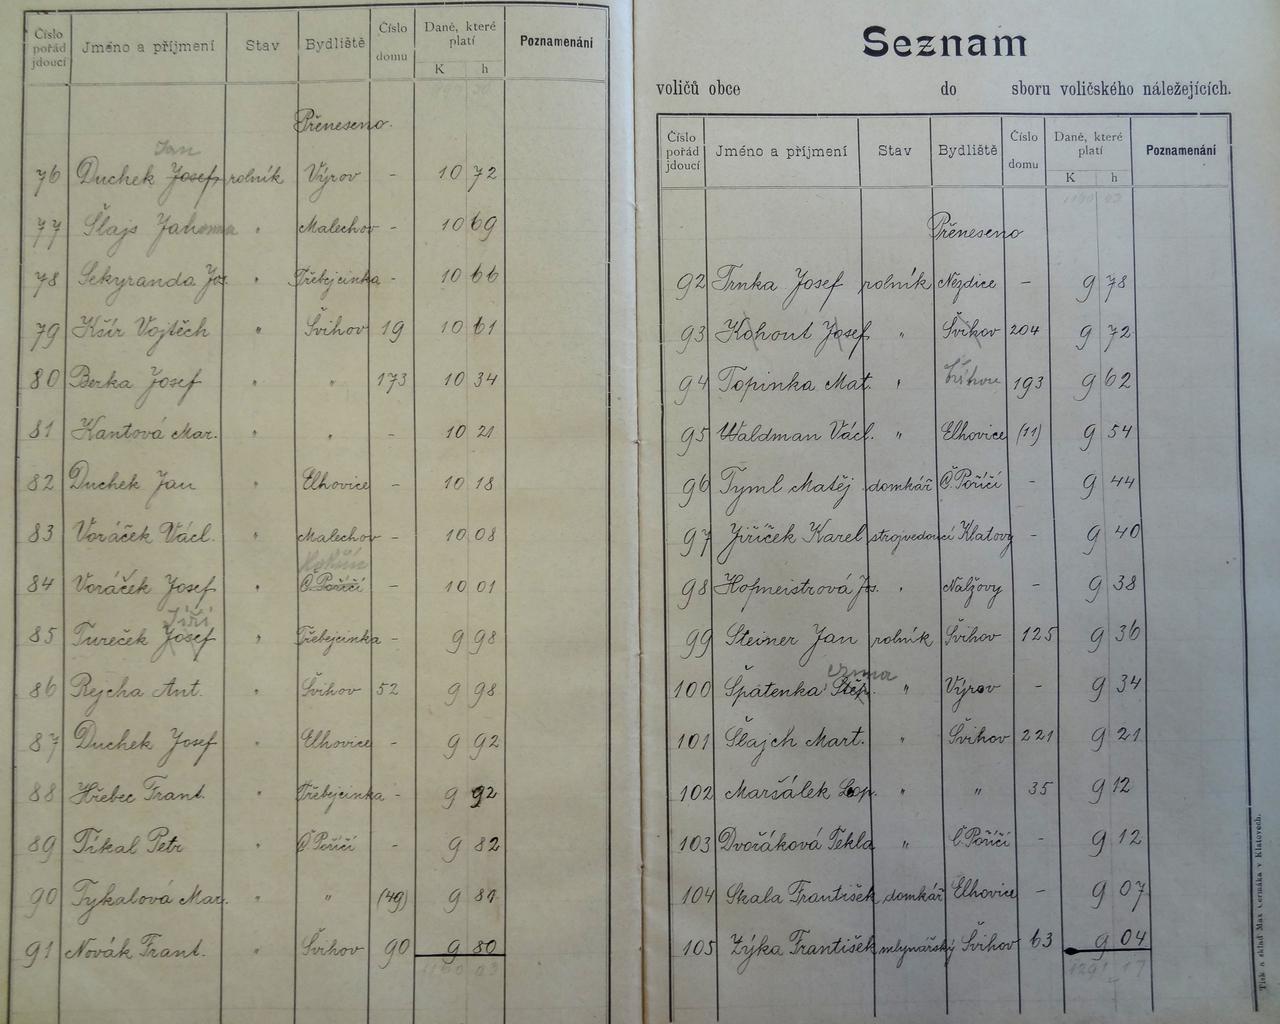 Číslo pořád jdoucí Jméno a příjmení Stav Bydliště Číslo domu Daně, které platí K h Poznamenání
Přeneseno.
Jan
76 Duchek Josef rolník Výrov - 10 72
77 Šlajs " Malechov - 10 69
78 Sekyranda Jos. " Třebejcinka - 10 66
79 Kšír Vojtěch " Švihov 19 10 61
80 Berka Josef " " 173 10 34
81 Kantová Mar. " " - 10 21
82 Duchek Jan " Elhovice - 10 18
83 Voráček Václ. " Malechov - 10 08
84 Voráček Josef " Č. Poříčí - 10 01
Jiří
85 Tureček Josef " Třebejcinka - 9 98
86 Rejcha Ant. " Švihov 52 9 98
87 Duchek Josef " Elhovice - 9 92
88 Hřebec Frant. " Třebejcinka - 9 92
89 Tikal Petr " Č. Poříčí - 9 82
90 Tykalová Mar. " " (49) 9 81
91 Novák Frant. " Švihov 90 9 80
1190 03
Seznam
voličů obce do sboru voličského náležejících.
Číslo pořád jdoucí Jméno a příjmení Stav Bydliště Číslo domu Daně, které platí K h Poznamenání
1190 03
Přeneseno
92 Trnka Josef rolník Nezdice - 9 78
93 Kohout Josef " Švihov 204 9 72
94 Topinka Mat. " 193 9 62
95 Waldman Václ. " Elhovice (11) 9 54
96 Tyml Matěj domkář Č. Poříčí - 9 44
97 Jiříček Karel strojvedoucí Klatovy - 9 40
98 Hofmeistrová Jos. " Nalžovy - 9 38
99 Steiner Jan rolník Švihov 125 9 36
100 Špatenka Štěp. " Výrov - 9 34
101 Šlajch Mart. " Švihov 221 9 21
102 Maršálek Leop. " " 35 9 12
103 Dvořáková Tekla " Č. Poříčí - 9 12
104 Skala František domkář Elhovice - 9 07
105 Zýka František mlynářský Švihov 63 9 04
1291 17
Tisk a sklad Max Čermáka v Klatovech.